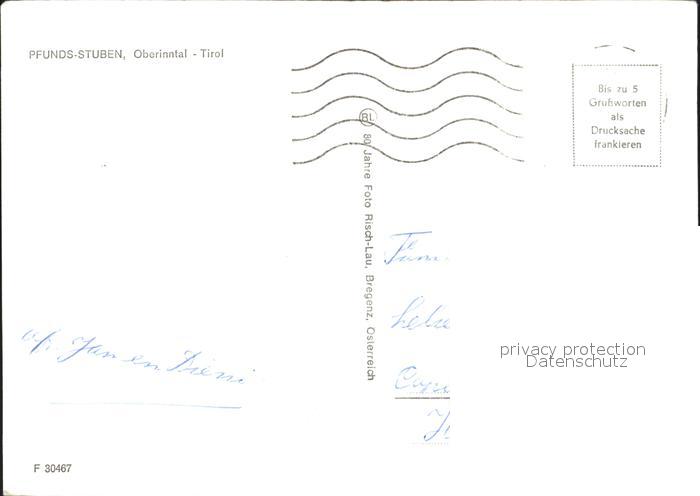 PFUNDS-STUBEN, Oberinntal - Tirol
Bis zu 5
Grußworten
als
Drucksache
frankieren
RL
80 Jahre Foto Risch-Lau, Bregenz, Österreich
Fam.
Jan en
privacy protection
Datenschutz
F 30467